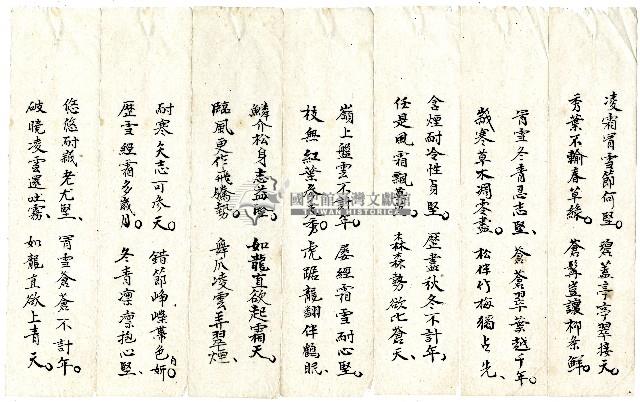 凌霜冒雪節何堅。碧蓋亭亭翠接天。
秀葉不輸春草綠。蒼髯豈讓柳条鮮。
冒雪冬青忍志堅、蒼蒼翠葉越千年。
歲寒草木凋零盡。松伴竹梅獨占先、
含煙耐冷性身堅。歷盡秋冬不計年、
任是風霜飄 森森勢欲比蒼天、
嶺上盤雲不計年。屢經霜雪耐心堅。
枝無紅葉 秀。虎踞龍翻伴鶴眠、
鱗介松身志益堅。如龍直欲起霜天。
臨風更作飛騰勢。舞爪凌雲弄翠煙、
耐寒矢志可參天。錯節 暮色妍
歷雪經霜多歲月。冬青凛凛抱心堅、
悠悠耐歲老尤堅、冒雪蒼蒼不計年。
破曉凌雲還吐霧。如龍直欲上青天。
國史館臺灣文獻館
TAIWAN HISTORICA